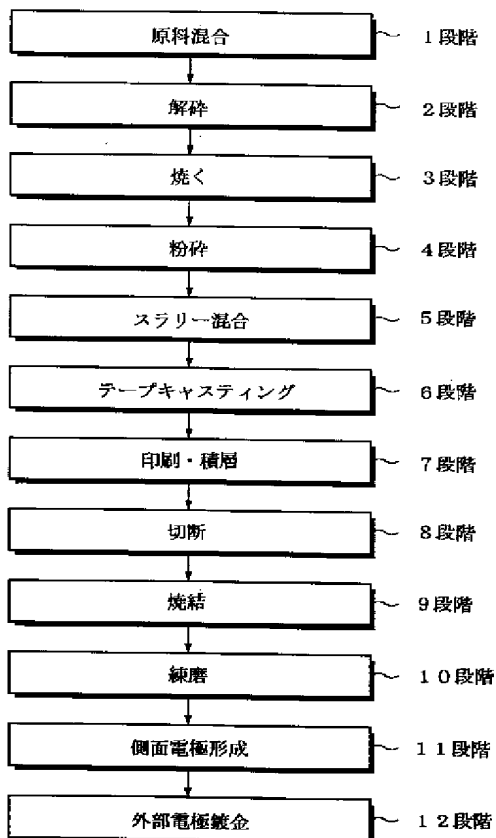 原料混合 1段階
解砕 2段階
焼く 3段階
粉砕 4段階
スラリー混合 5段階
テープキャスティング 6段階
印刷・積層 7段階
切断 8段階
焼結 9段階
練磨 10段階
側面電極形成 11段階
外部電極鍍金 12段階